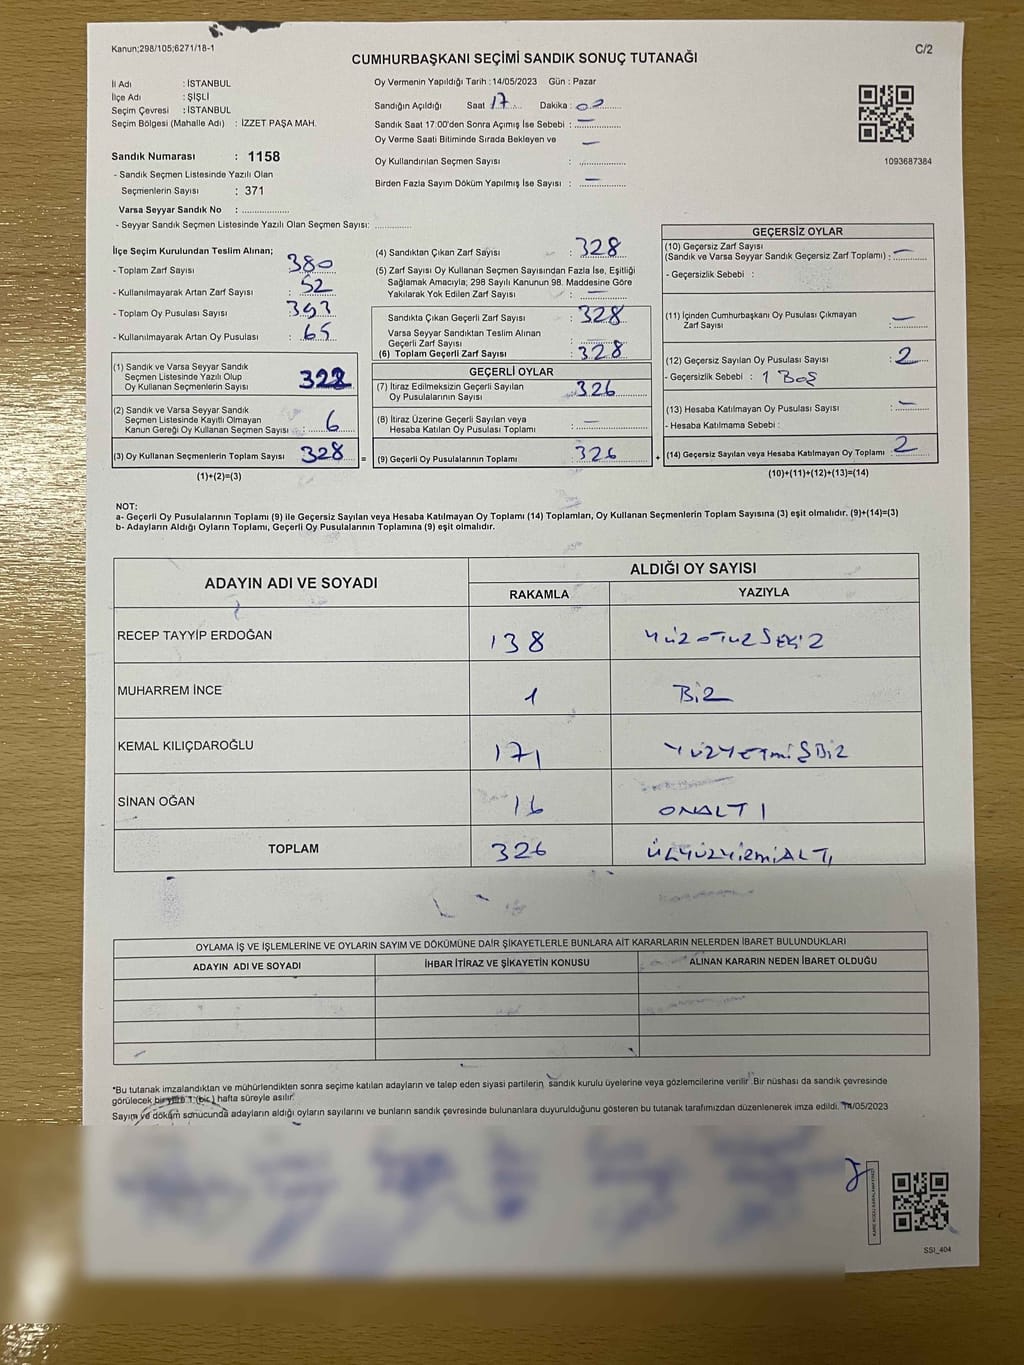 Kanun;298/105;6271/18-1
C/2
CUMHURBAŞKANI SEÇİMİ SANDIK SONUÇ TUTANAĞI
İl Adı : İSTANBUL
İlçe Adı : ŞİŞLİ
Seçim Çevresi : İSTANBUL
Seçim Bölgesi (Mahalle Adı) : İZZET PAŞA MAH.
Sandık Numarası : 1158
- Sandık Seçmen Listesinde Yazılı Olan
Seçmenlerin Sayısı : 371
Varsa Seyyar Sandık No : ..................
- Seyyar Sandık Seçmen Listesinde Yazılı Olan Seçmen Sayısı: ..............
Oy Vermenin Yapıldığı Tarih : 14/05/2023 Gün : Pazar
Sandığın Açıldığı Saat 17 Dakika : 00
Sandık Saat 17:00'den Sonra Açımış İse Sebebi : —
Oy Verme Saati Bitiminde Sırada Bekleyen ve —
Oy Kullandırılan Seçmen Sayısı : ..................
Birden Fazla Sayım Döküm Yapılmış İse Sayısı : —
1093687384
İlçe Seçim Kurulundan Teslim Alınan;
- Toplam Zarf Sayısı : 380
- Kullanılmayarak Artan Zarf Sayısı : 52
- Toplam Oy Pusulası Sayısı : 393
- Kullanılmayarak Artan Oy Pusulası : 65
(1) Sandık ve Varsa Seyyar Sandık
Seçmen Listesinde Yazılı Olup
Oy Kullanan Seçmenlerin Sayısı : 322
(2) Sandık ve Varsa Seyyar Sandık
Seçmen Listesinde Kayıtlı Olmayan
Kanun Gereği Oy Kullanan Seçmen Sayısı : 6
(3) Oy Kullanan Seçmenlerin Toplam Sayısı : 328
(1)+(2)=(3)
(4) Sandıktan Çıkan Zarf Sayısı : 328
(5) Zarf Sayısı Oy Kullanan Seçmen Sayısından Fazla İse, Eşitliği
Sağlamak Amacıyla; 298 Sayılı Kanunun 98. Maddesine Göre
Yakılarak Yok Edilen Zarf Sayısı : —
Sandıkta Çıkan Geçerli Zarf Sayısı : 328
Varsa Seyyar Sandıktan Teslim Alınan
Geçerli Zarf Sayısı : ..................
(6) Toplam Geçerli Zarf Sayısı : 328
GEÇERLİ OYLAR
(7) İtiraz Edilmeksizin Geçerli Sayılan
Oy Pusulalarının Sayısı : 326
(8) İtiraz Üzerine Geçerli Sayılan veya
Hesaba Katılan Oy Pusulası Toplamı : —
= (9) Geçerli Oy Pusulalarının Toplamı : 326
GEÇERSİZ OYLAR
(10) Geçersiz Zarf Sayısı
(Sandık ve Varsa Seyyar Sandık Geçersiz Zarf Toplamı) : —
- Geçersizlik Sebebi :
(11) İçinden Cumhurbaşkanı Oy Pusulası Çıkmayan
Zarf Sayısı : —
(12) Geçersiz Sayılan Oy Pusulası Sayısı : 2
- Geçersizlik Sebebi : 1 BOŞ
(13) Hesaba Katılmayan Oy Pusulası Sayısı : —
- Hesaba Katılmama Sebebi :
+ (14) Geçersiz Sayılan veya Hesaba Katılmayan Oy Toplamı : 2
(10)+(11)+(12)+(13)=(14)
NOT:
a- Geçerli Oy Pusulalarının Toplamı (9) ile Geçersiz Sayılan veya Hesaba Katılmayan Oy Toplamı (14) Toplamları, Oy Kullanan Seçmenlerin Toplam Sayısına (3) eşit olmalıdır. (9)+(14)=(3)
b- Adayların Aldığı Oyların Toplamı, Geçerli Oy Pusulalarının Toplamına (9) eşit olmalıdır.
ADAYIN ADI VE SOYADI
ALDIĞI OY SAYISI
RAKAMLA YAZIYLA
RECEP TAYYİP ERDOĞAN 138 YÜZOTUZSEKİZ
MUHARREM İNCE 1 BİR
KEMAL KILIÇDAROĞLU 171 YÜZYETMİŞBİR
SİNAN OĞAN 16 ONALTI
TOPLAM 326 ÜÇYÜZYİRMİALTI
OYLAMA İŞ VE İŞLEMLERİNE VE OYLARIN SAYIM VE DÖKÜMÜNE DAİR ŞİKAYETLERLE BUNLARA AİT KARARLARIN NELERDEN İBARET BULUNDUKLARI
ADAYIN ADI VE SOYADI İHBAR İTİRAZ VE ŞİKAYETİN KONUSU ALINAN KARARIN NEDEN İBARET OLDUĞU
*Bu tutanak imzalandıktan ve mühürlendikten sonra seçime katılan adayların ve talep eden siyasi partilerin, sandık kurulu üyelerine veya gözlemcilerine verilir. Bir nüshası da sandık çevresinde
görülecek bir yere 1 (bir) hafta süreyle asılır.
Sayım ve döküm sonucunda adayların aldığı oyların sayılarını ve bunların sandık çevresinde bulunanlara duyurulduğunu gösteren bu tutanak tarafımızdan düzenlenerek imza edildi. 14/05/2023
SSI_404